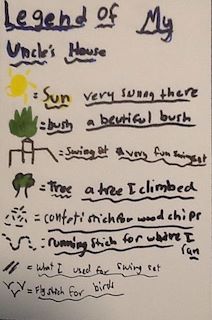 Legend Of My
Uncle's House
= Sun very sunny there
= bush a beutiful bush
= Swing set a very fun swingset
= Tree a tree I climbed
= confeti stich for wood chips
= running stich for where I
ran
= What I used for swing set
= Fly stich for birds